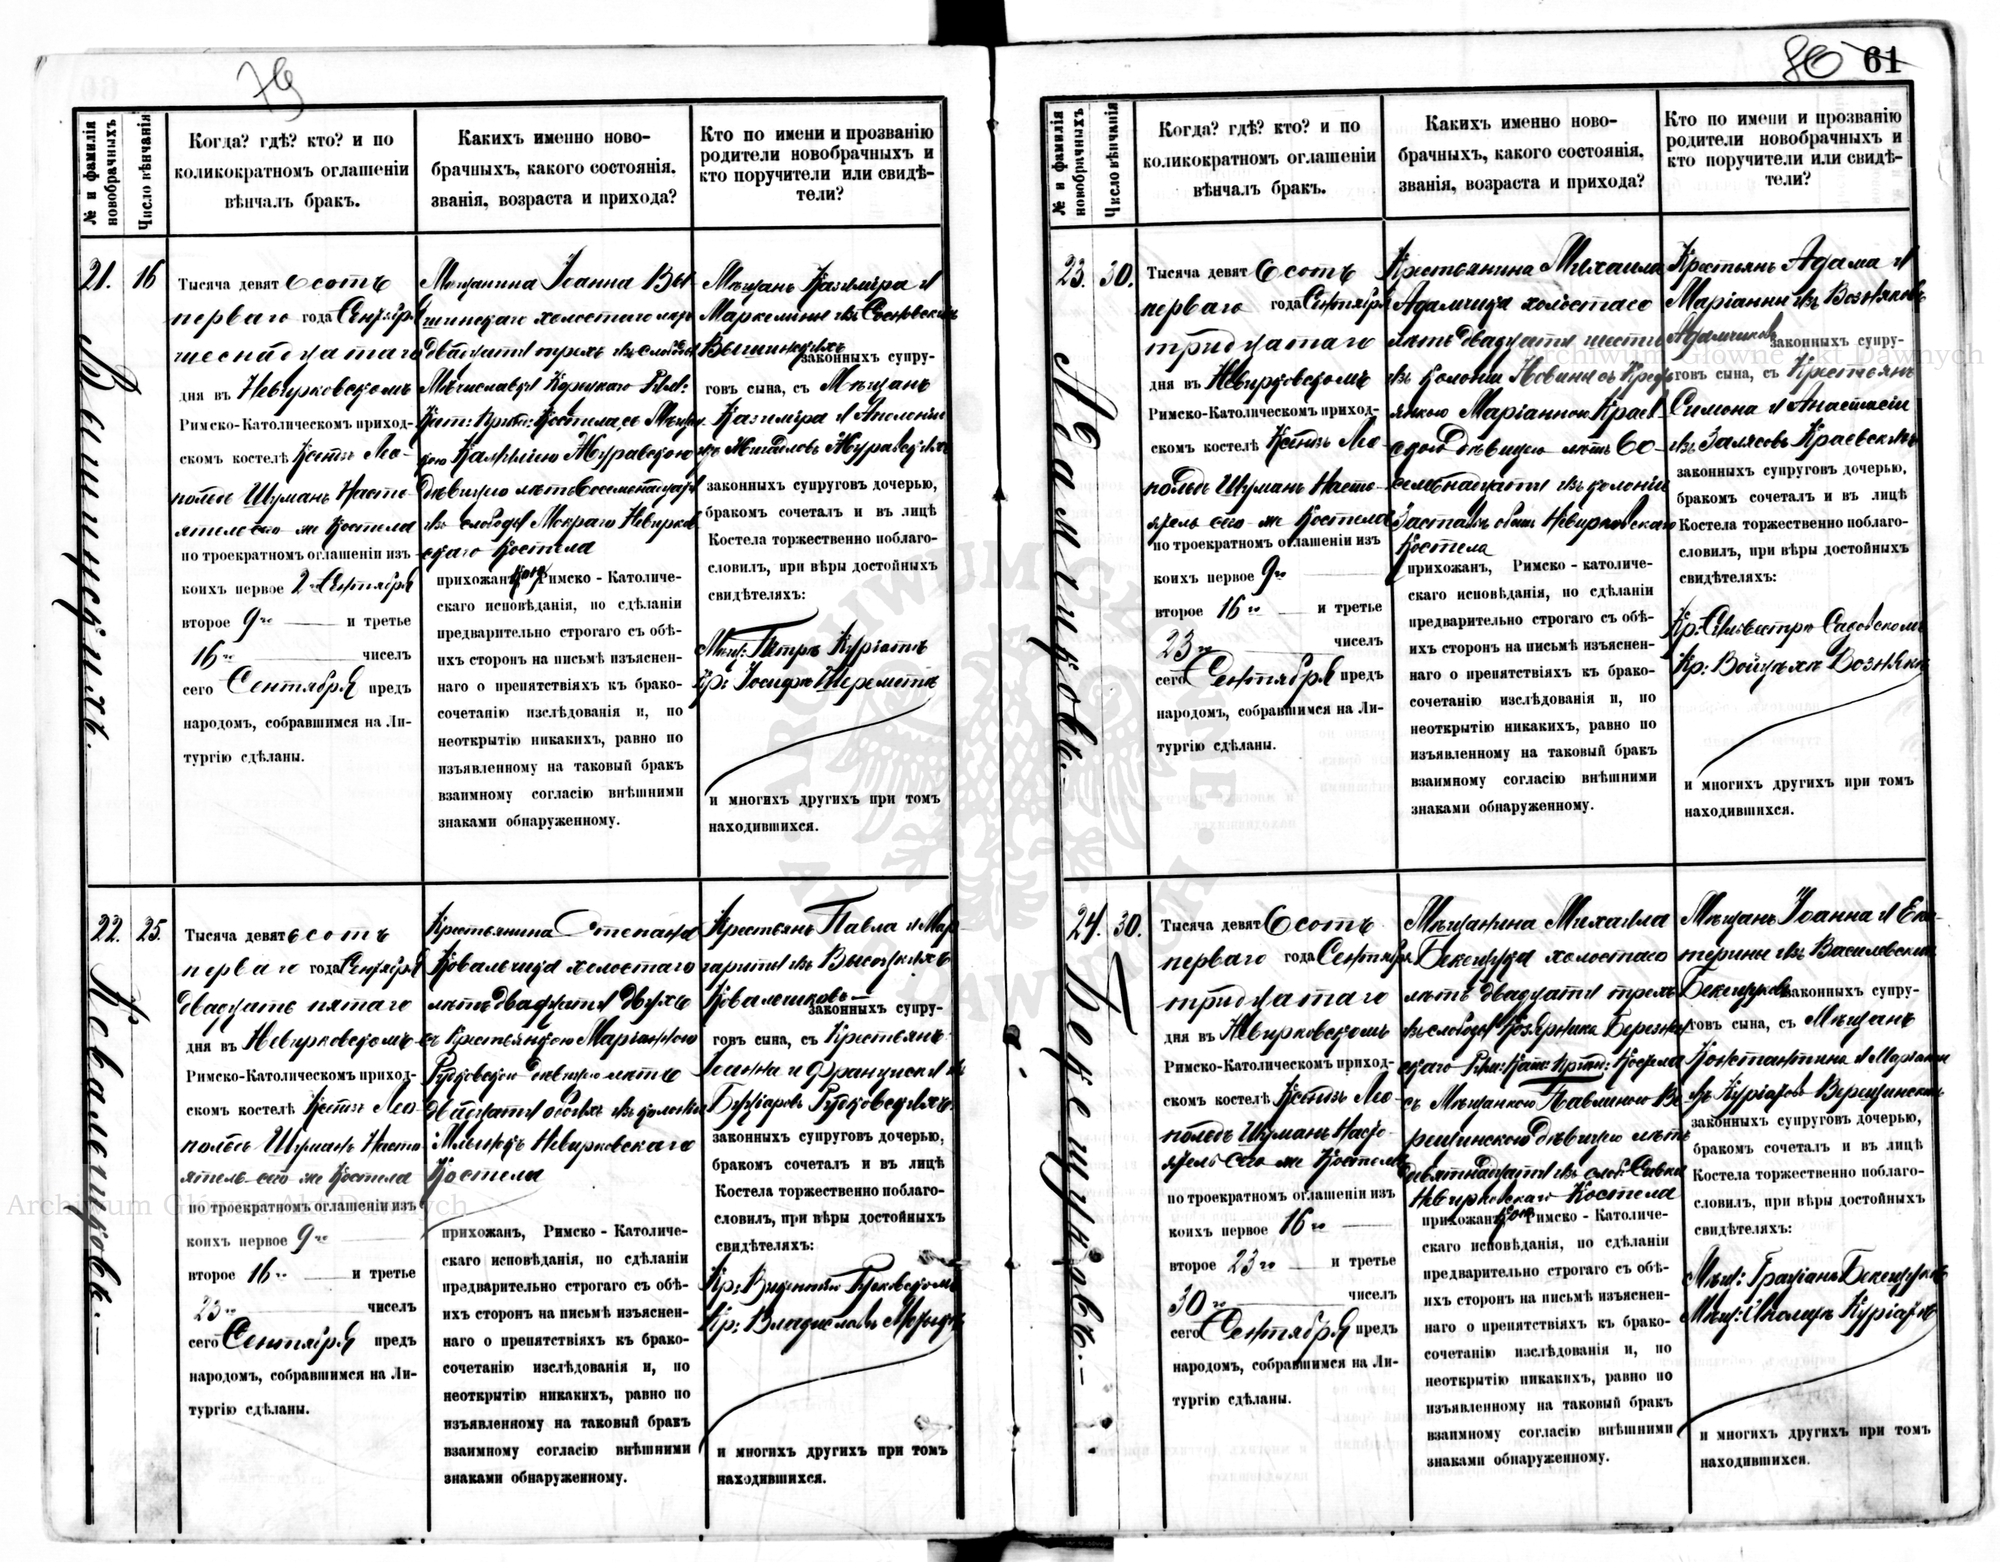 79
№ и фамилія новобрачныхъ
Число вѣнчанія
Когда? гдѣ? кто? и по
коликократномъ оглашеніи
вѣнчалъ бракъ.
Какихъ именно ново-
брачныхъ, какого состоянія,
званія, возраста и прихода?
Кто по имени и прозванію
родители новобрачныхъ и
кто поручители или свидѣ-
тели?
21.
16
Тысяча девятьсотъ
перваго года Сентября
шеснадцатаго
дня въ Невирковскомъ
Римско-Католическомъ приход-
скомъ костелѣ Ксендзъ Лео-
польдъ Шуманъ Насто-
ятель сего же Костела
по троекратномъ оглашеніи изъ
коихъ первое 2 Сентября
второе 9го и третье
16го чиселъ
сего Сентября предъ
народомъ, собравшимся на Ли-
тургію сдѣланы.
Мѣщанина Іоанна Вы-
шинскаго холостаго лѣтъ
двадцати трехъ изъ слободы
Костела съ Мѣщан-
кою Камилею Журавскою
дѣвицею лѣтъ восемнадцати
изъ слободы Мокраго Невирков-
скаго Костела
прихожан Римско - Католиче-
скаго исповѣданія, по сдѣланіи
предварительно строгаго съ обѣ-
ихъ сторонъ на письмѣ изъяснен-
наго о препятствіяхъ къ брако-
сочетанію изслѣдованія и, по
неоткрытію никакихъ, равно по
изъявленному на таковый бракъ
взаимному согласію внѣшними
знаками обнаруженному.
Мѣщанъ Казиміра и
Вышинскихъ законныхъ супру-
говъ сына, съ Мѣщанъ
Казиміра и Аполоніи
Журавскихъ
законныхъ супруговъ дочерью,
бракомъ сочеталъ и въ лицѣ
Костела торжественно поблаго-
словилъ, при вѣры достойныхъ
свидѣтеляхъ:
Мѣщ: Петръ Курьятъ
Кр: Іосифъ Шереметъ
и многихъ другихъ при томъ
находившихся.
Вышинскихъ.
22.
25.
Тысяча девятьсотъ
перваго года Сентября
двадцать пятаго
дня въ Невирковскомъ
Римско-Католическомъ приход-
скомъ костелѣ Ксендзъ Лео-
польдъ Шуманъ Насто-
ятель сего же Костела
по троекратномъ оглашеніи изъ
коихъ первое 9го
второе 16го и третье
23го чиселъ
сего Сентября предъ
народомъ, собравшимся на Ли-
тургію сдѣланы.
Крестьянина Степана
холостаго
лѣтъ двадцати двухъ
съ Крестьянкою Маріанною
Рудковскою дѣвицею лѣтъ
двадцати изъ колоніи
Невирковскаго
Костела
прихожанъ, Римско - Католиче-
скаго исповѣданія, по сдѣланіи
предварительно строгаго съ обѣ-
ихъ сторонъ на письмѣ изъяснен-
наго о препятствіяхъ къ брако-
сочетанію изслѣдованія и, по
неоткрытію никакихъ, равно по
изъявленному на таковый бракъ
взаимному согласію внѣшними
знаками обнаруженному.
Крестьянъ Павла и Мар-
гариты изъ Высоцкихъ
законныхъ супру-
говъ сына, съ Крестьянъ
Іоанна и Франциски изъ
Рудковскихъ
законныхъ супруговъ дочерью,
бракомъ сочеталъ и въ лицѣ
Костела торжественно поблаго-
словилъ, при вѣры достойныхъ
свидѣтеляхъ:
Кр: Викентій
Кр: Владиславъ
и многихъ другихъ при томъ
находившихся.
80 61
№ и фамилія новобрачныхъ
Число вѣнчанія
Когда? гдѣ? кто? и по
коликократномъ оглашеніи
вѣнчалъ бракъ.
Какихъ именно ново-
брачныхъ, какого состоянія,
званія, возраста и прихода?
Кто по имени и прозванію
родители новобрачныхъ и
кто поручители или свидѣ-
тели?
23.
30.
Тысяча девятьсотъ
перваго года Сентября
тридцатаго
дня въ Невирковскомъ
Римско-Католическомъ приход-
скомъ костелѣ Ксендзъ Лео-
польдъ Шуманъ Насто-
ятель сего же Костела
по троекратномъ оглашеніи изъ
коихъ первое 9го
второе 16го и третье
23го чиселъ
сего Сентября предъ
народомъ, собравшимся на Ли-
тургію сдѣланы.
Крестьянина Михаила
Адамчика холостаго
лѣтъ двадцати шести
изъ колоніи Новины съ Крестья-
янкою Маріанною Краев-
скою дѣвицею лѣтъ во-
семьнадцати изъ колоніи
Невирковскаго
Костела
прихожанъ, Римско - католиче-
скаго исповѣданія, по сдѣланіи
предварительно строгаго съ обѣ-
ихъ сторонъ на письмѣ изъяснен-
наго о препятствіяхъ къ брако-
сочетанію изслѣдованія и, по
неоткрытію никакихъ, равно по
изъявленному на таковый бракъ
взаимному согласію внѣшними
знаками обнаруженному.
Крестьянъ Адама и
Маріанны изъ Возняковъ
Адамчиковъ законныхъ супру-
говъ сына, съ Крестьянъ
Симона и Анастасіи
изъ Залясовъ Краевскихъ
законныхъ супруговъ дочерью,
бракомъ сочеталъ и въ лицѣ
Костела торжественно поблаго-
словилъ, при вѣры достойныхъ
свидѣтеляхъ:
Кр: Сильвестръ Садовскомъ
Кр: Войцѣхъ Вознякъ
и многихъ другихъ при томъ
находившихся.
Адамчиковъ.
24.
30.
Тысяча девятьсотъ
перваго года Сентября
тридцатаго
дня въ Невирковскомъ
Римско-Католическомъ приход-
скомъ костелѣ Ксендзъ Лео-
польдъ Шуманъ Насто-
ятель сего же Костела
по троекратномъ оглашеніи изъ
коихъ первое 16го
второе 23го и третье
30го чиселъ
сего Сентября предъ
народомъ, собравшимся на Ли-
тургію сдѣланы.
Мѣщанина Михаила
холостаго
лѣтъ двадцати трехъ
изъ слободы Козярника Березнов-
скаго Рим: Кат: Прих: Костела
съ Мѣщанкою Павлиною Ве-
рещинскою дѣвицею лѣтъ
девятнадцати изъ слоб:
Невирковскаго Костела
прихожан Римско - Католиче-
скаго исповѣданія, по сдѣланіи
предварительно строгаго съ обѣ-
ихъ сторонъ на письмѣ изъяснен-
наго о препятствіяхъ къ брако-
сочетанію изслѣдованія и, по
неоткрытію никакихъ, равно по
изъявленному на таковый бракъ
взаимному согласію внѣшними
знаками обнаруженному.
Мѣщанъ Іоанна и Ека-
терины изъ Василевскихъ
законныхъ супру-
говъ сына, съ Мѣщанъ
Константина и Маріанны
изъ Курьятовъ Верещинскихъ
законныхъ супруговъ дочерью,
бракомъ сочеталъ и въ лицѣ
Костела торжественно поблаго-
словилъ, при вѣры достойныхъ
свидѣтеляхъ:
Мѣщ:
Мѣщ: Курьятъ
и многихъ другихъ при томъ
находившихся.
Archiwum Główne Akt Dawnych
Archiwum Główne Akt Dawnych
ARCHIWUM GŁÓWNE AKT DAWNYCH